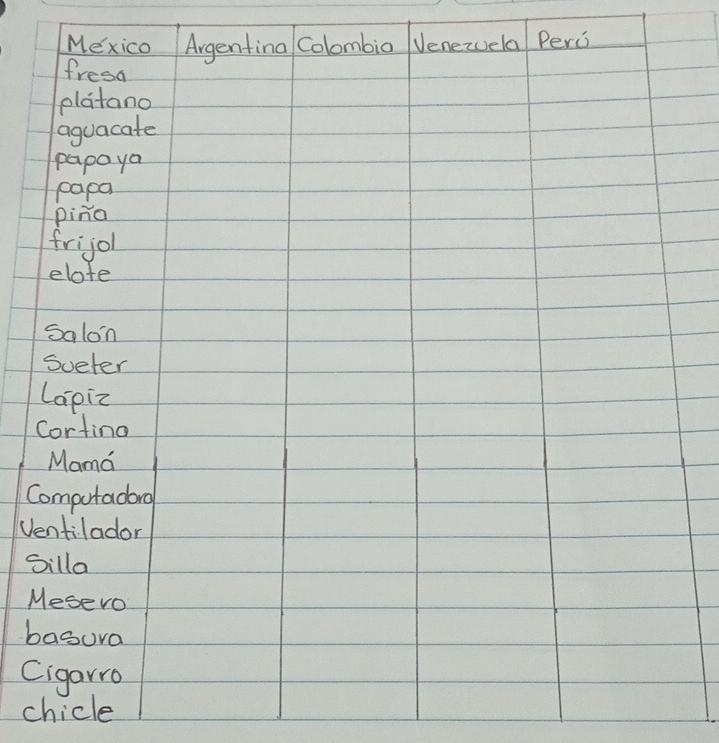 México Argentina Colombia Venezuela Perú
fresa
plátano
aguacate
papaya
papa
piña
frijol
elote
Salón
Sueter
Lápiz
Cortina
Mamá
Computadora
Ventilador
Silla
Mesero
basura
Cigarro
chicle